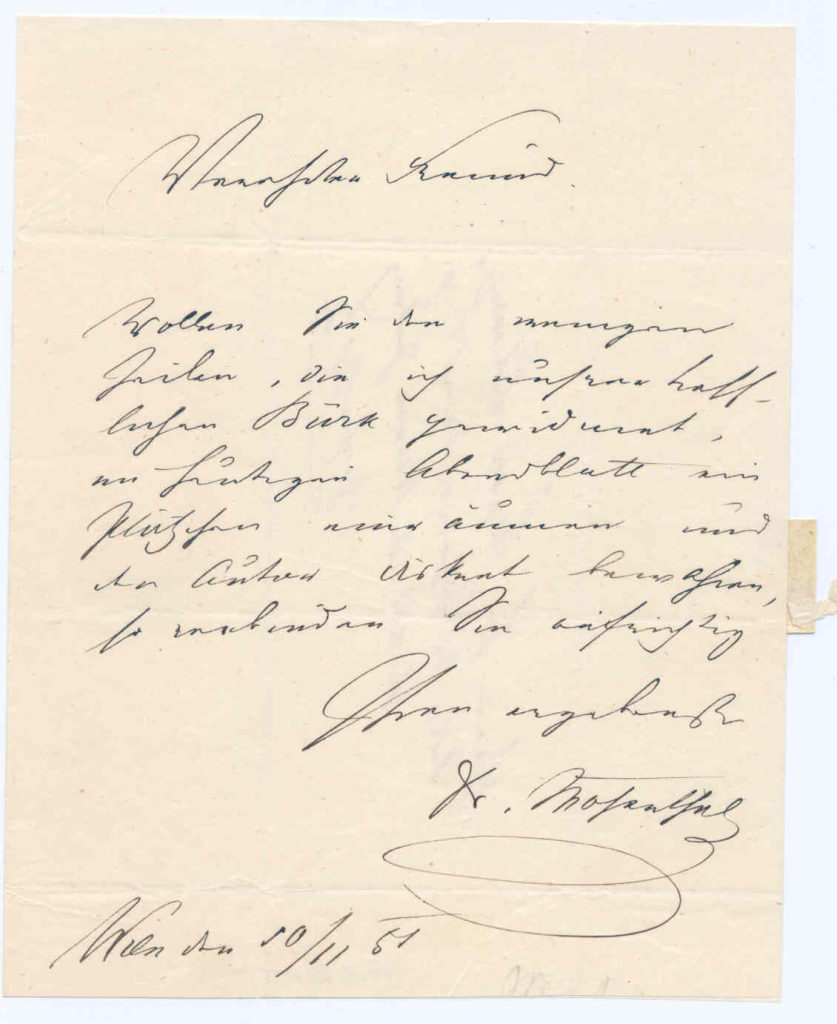 Verehrter Freund.
Wollen Sie den wenigen
Zeilen, die ich unsrer treff-
lichen Bürk gewidmet,
im heutigen Abendblatt ein
Plätzchen einräumen und
den Autor diskret bewahren,
so verbinden Sie aufrichtig
Ihren ergebenst
Dr. Mosenthal
Wien den 10/11 51